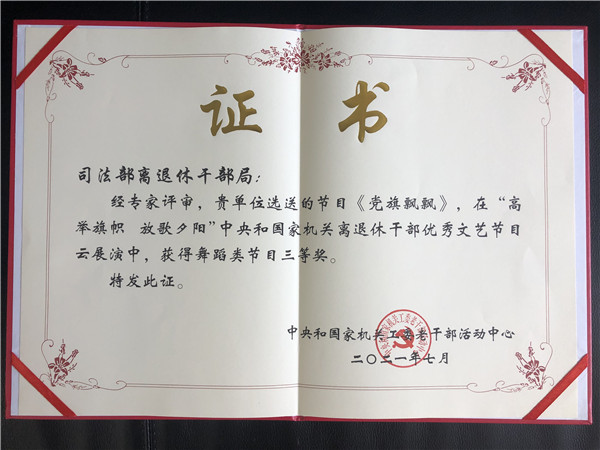 证书
司法部离退休干部局：
经专家评审，贵单位选送的节目《党旗飘飘》，在“高
举旗帜 放歌夕阳”中央和国家机关离退休干部优秀文艺节目
云展演中，获得舞蹈类节目三等奖。
特发此证。
中央和国家机关工委老干部活动中心
二〇二一年七月